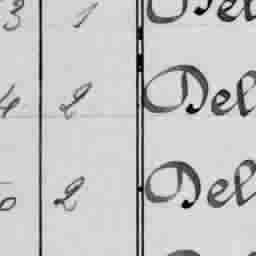 3 1 Del
4 2 Del
2 Del